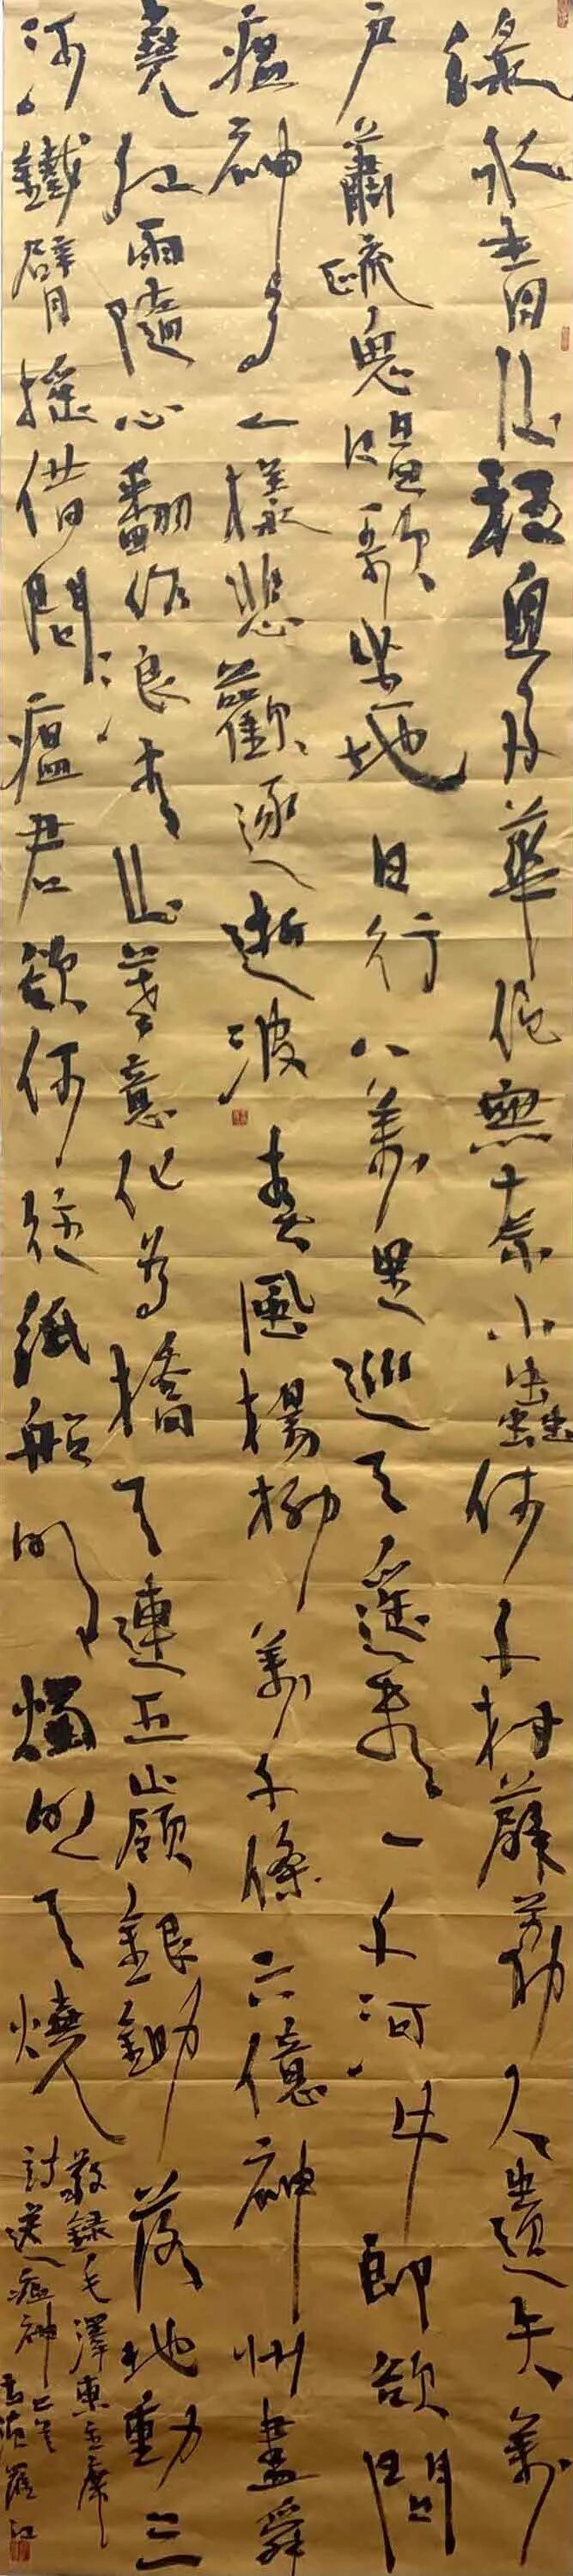 綠水青山枉自多華佗無奈小蟲何千村薜荔人遺矢萬
戶蕭疏鬼唱歌坐地日行八萬里巡天遙看一千河牛郎欲問
瘟神事一樣悲歡逐逝波春風楊柳萬千條六億神州盡舜
堯紅雨隨心翻作浪青山著意化為橋天連五嶺銀鋤落地動三
河鐵臂搖借問瘟君欲何往紙船明燭照天燒
敬錄毛澤東主席
詩送瘟神
羅江